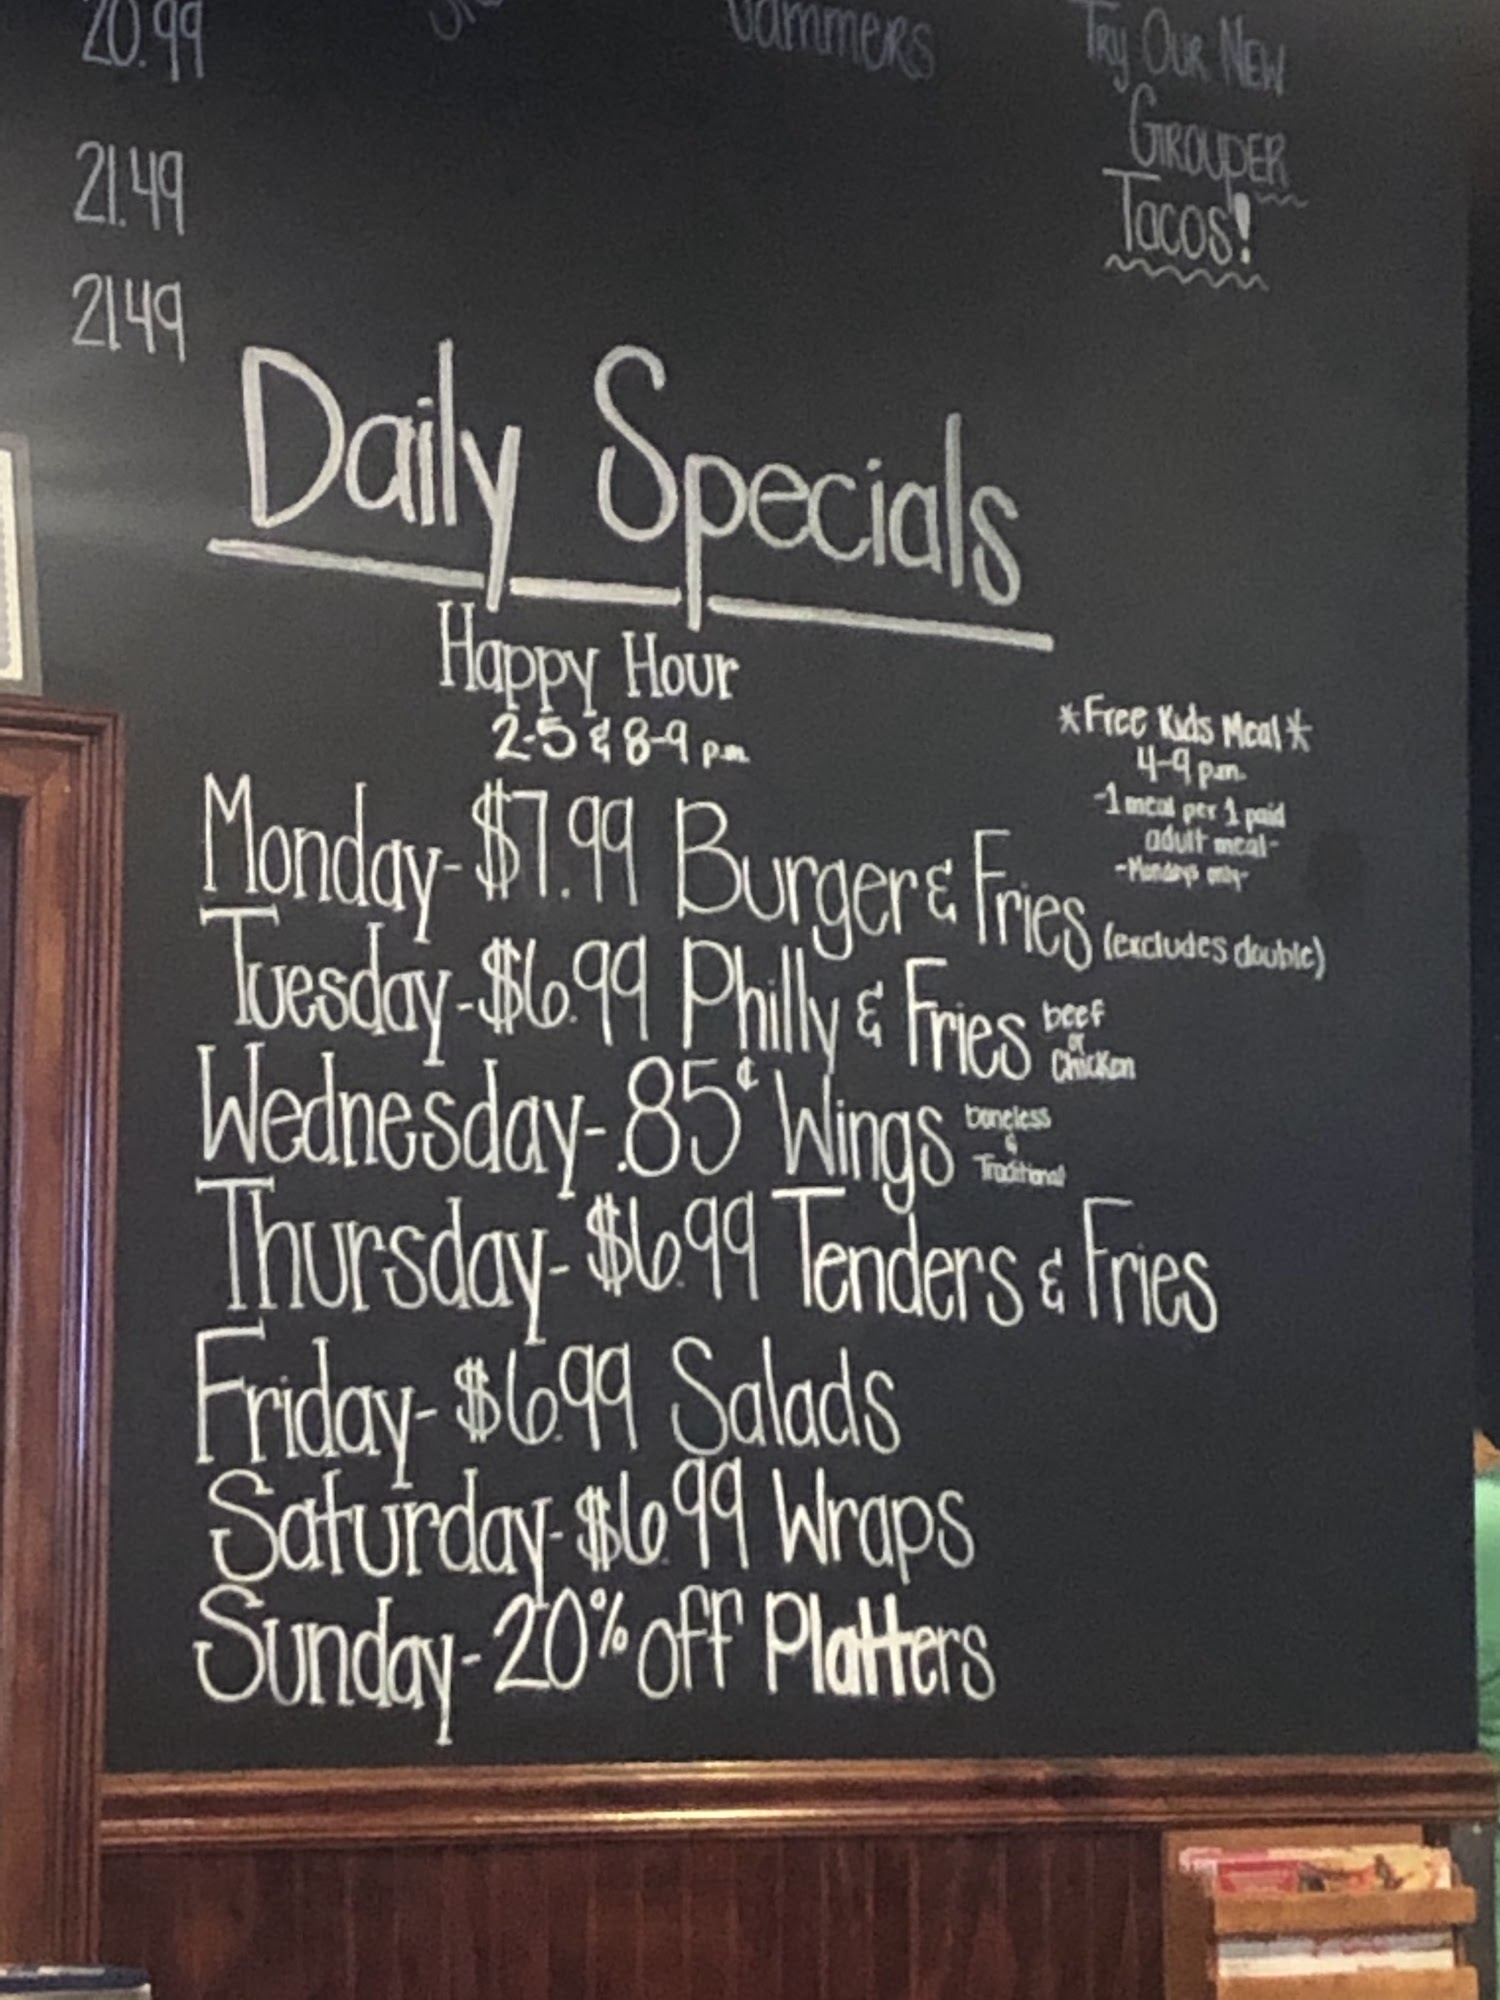 20.99
Jammers
Try Our New
Grouper
Tacos!
21.49
21.49
Daily Specials
Happy Hour
2-5 & 8-9 p.m.
*Free Kids Meal*
4-9 p.m.
-1 meal per 1 paid
adult meal-
-Mondays only-
Monday- $7.99 Burger & Fries (excludes double)
Tuesday- $6.99 Philly & Fries beef
or
Chicken
Wednesday- .85¢ Wings boneless
&
Traditional
Thursday- $6.99 Tenders & Fries
Friday- $6.99 Salads
Saturday- $6.99 Wraps
Sunday- 20% off Platters